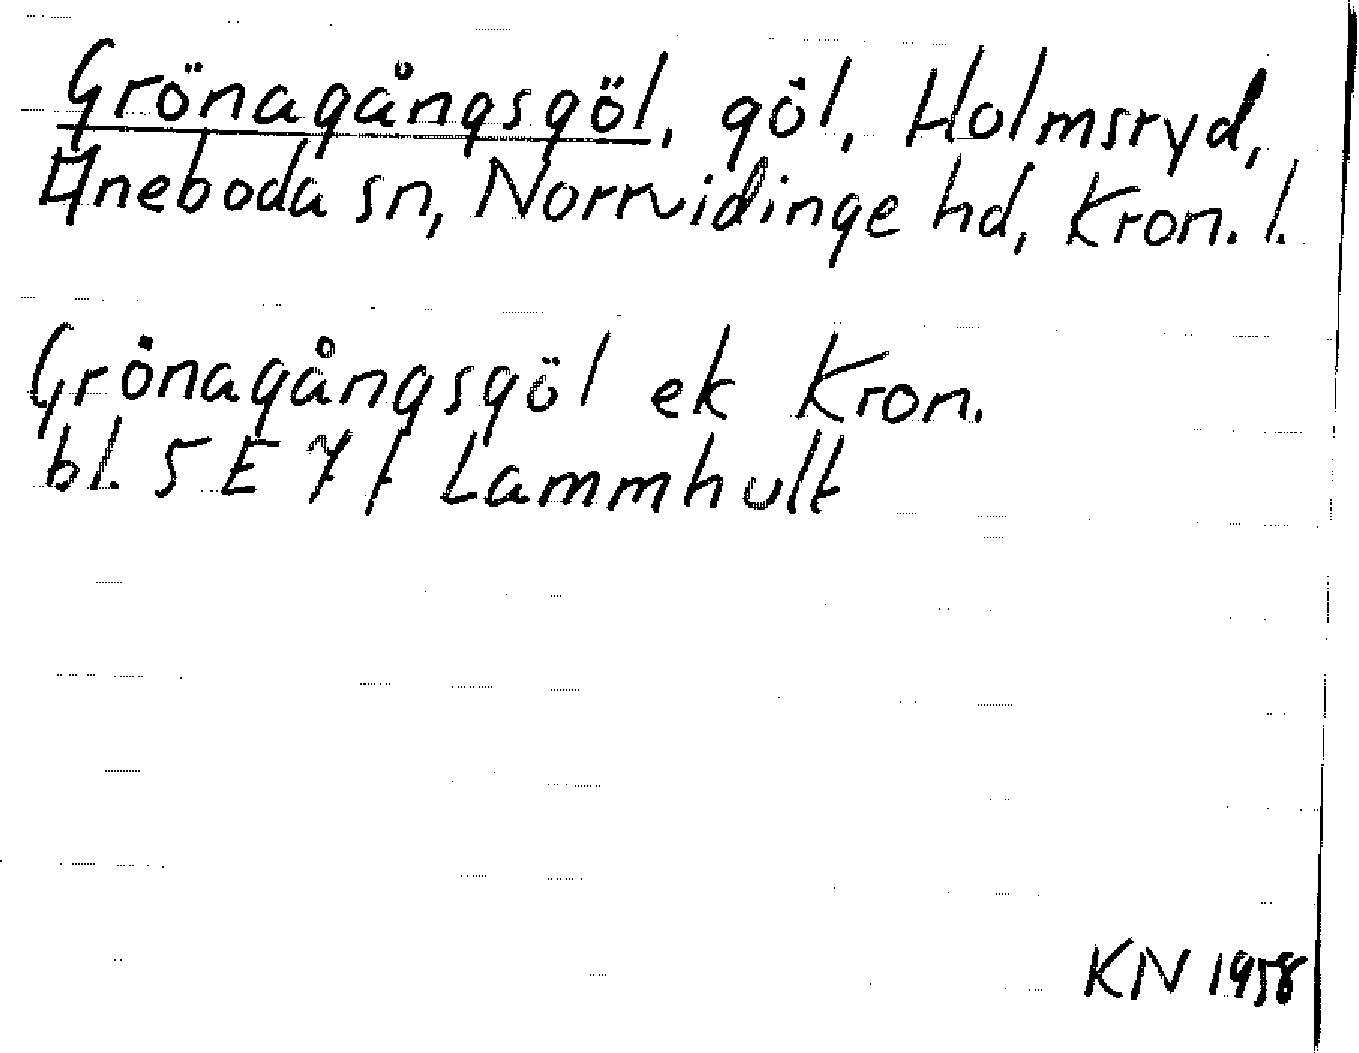 Grönagångsgöl, göl, Holmsryd,
Aneboda sn, Norrvidinge hd, Kron. l.
Grönagångsgöl ek Kron.
bl. 5 E 7 f Lammhult
KN 1958